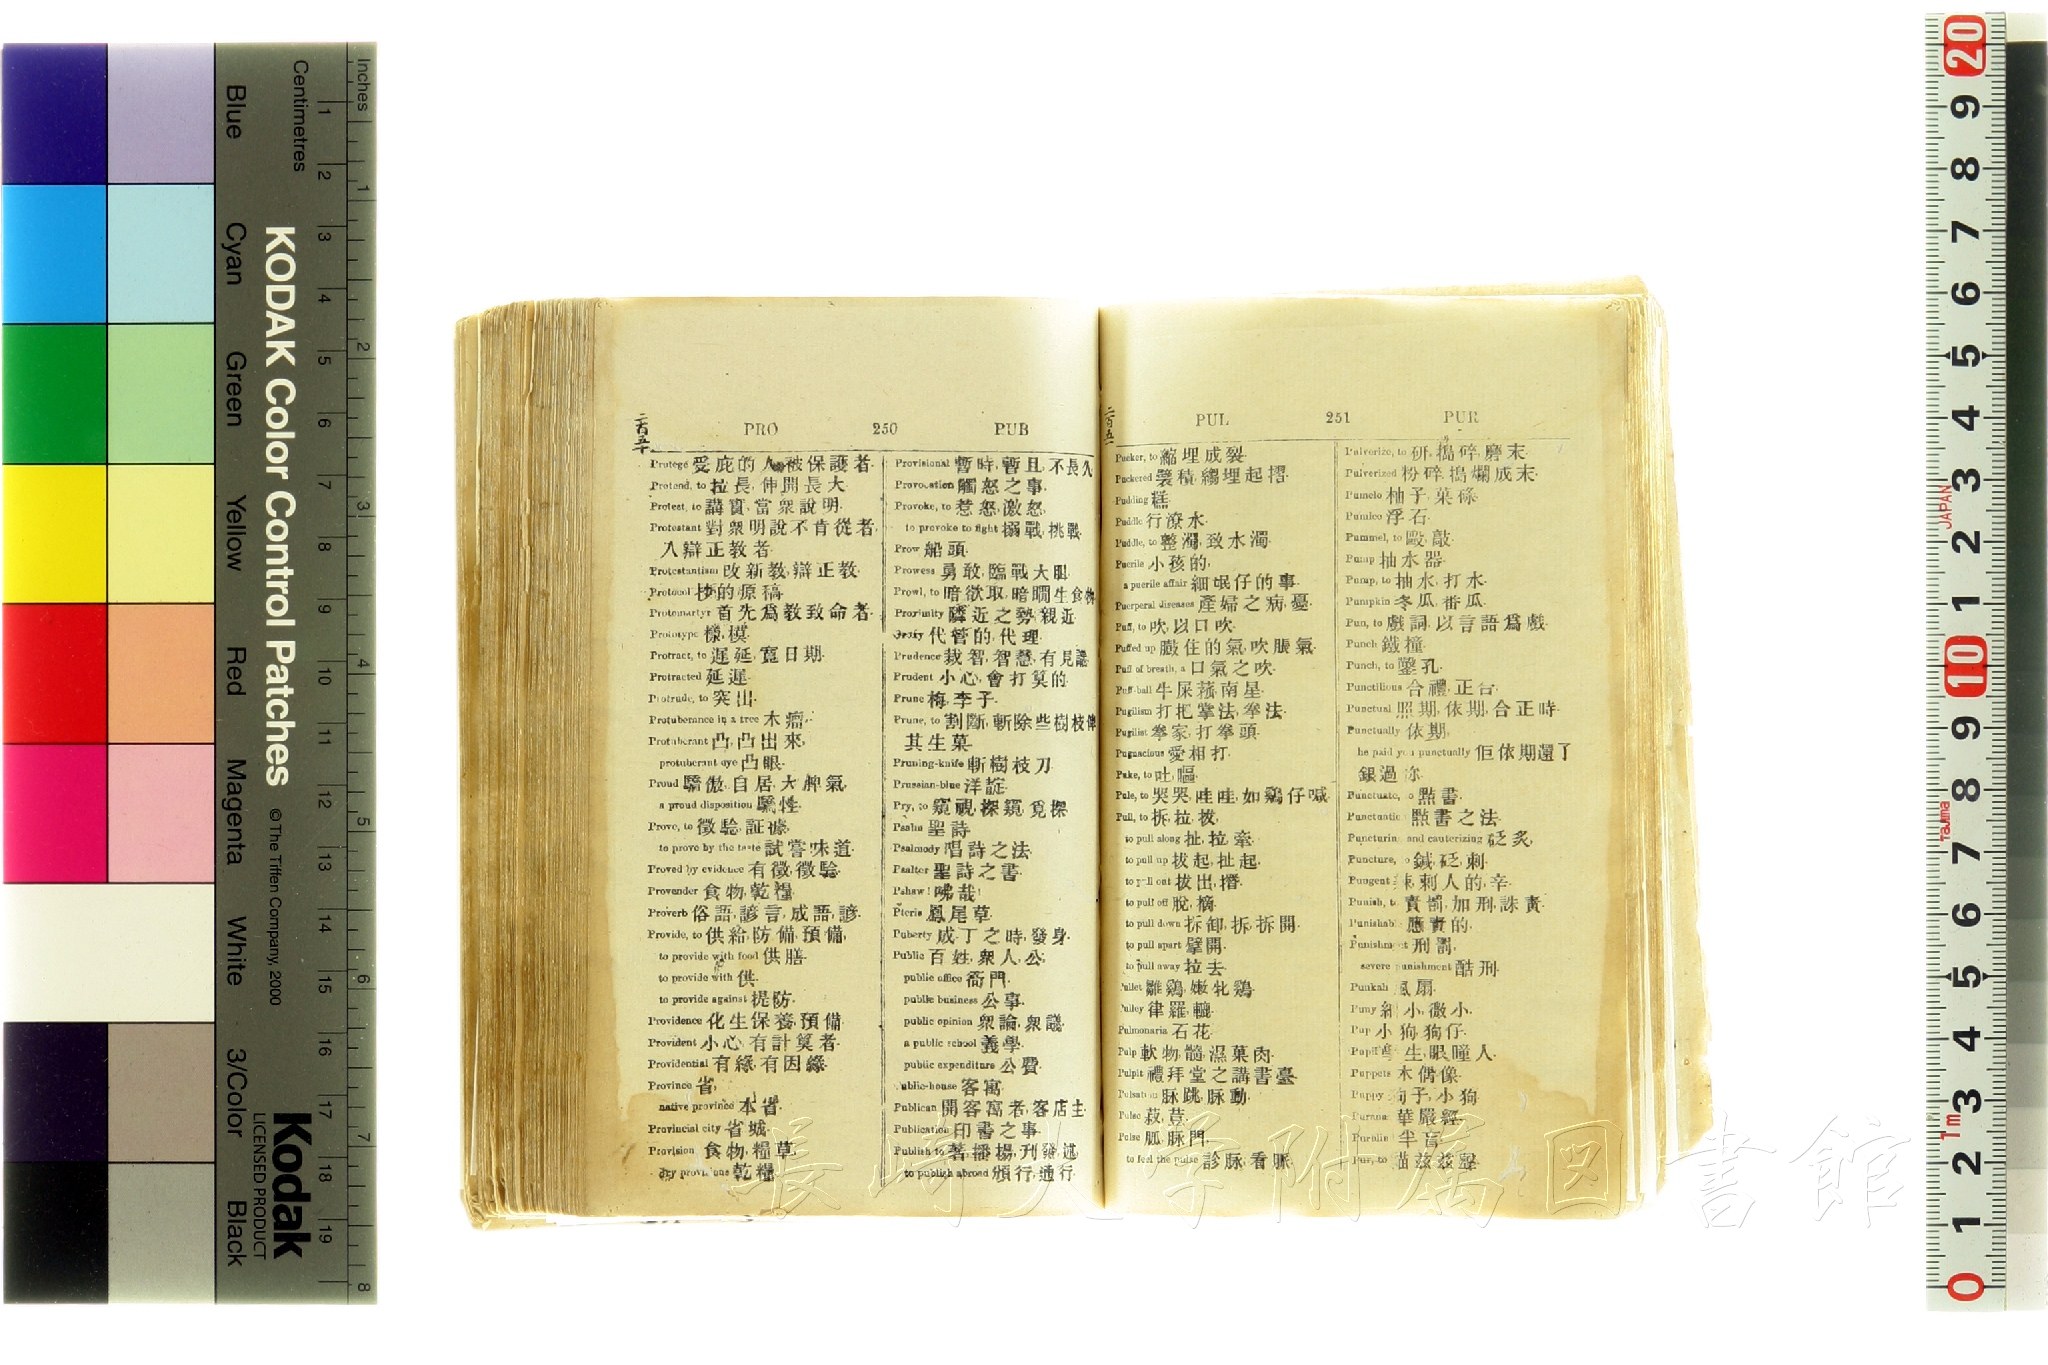 二百五十
PRO 250 PUB
Protege 受庇的人, 被保護者.
Protend, to 拉長, 伸開長大.
Protest, to 講實, 當衆說明.
Protestant 對衆明說不肯從者,
入辯正教者.
Protestantism 改新教, 辯正教.
Protocol 抄的原稿.
Protomartyr 首先爲教致命者.
Prototype 樣, 模.
Protract, to 遲延, 寬日期.
Protracted 延遲.
Protrude, to 突出.
Protuberance in a tree 木瘤.
Protuberant 凸, 凸出來,
protuberant eye 凸眼.
Proud 驕傲, 自居, 大脾氣,
a proud disposition 驕性.
Prove, to 徵驗, 証據,
to prove by the taste 試嘗味道.
Proved by evidence 有徵, 徵驗.
Provender 食物, 乾糧.
Proverb 俗語, 諺言, 成語, 諺.
Provide, to 供給, 防備, 預備,
to provide with food 供膳.
to provide with 供.
to provide against 提防.
Providence 化生保養, 預備.
Provident 小心, 有計算者.
Providential 有緣, 有因緣.
Province 省,
native province 本省.
Provincial city 省城.
Provision 食物, 糧草,
dry provisions 乾糧.
Provisional 暫時, 暫且, 不長久
Provocation 觸怒之事.
Provoke, to 惹怒, 激怒,
to provoke to fight 搦戰, 挑戰.
Prow 船頭.
Prowess 勇敢, 臨戰大胆.
Prowl, to 暗欲取, 暗瞷生食物
Proximity 隣近之勢, 親近.
Proxy 代管的, 代理.
Prudence 裁智, 智慧, 有見識.
Prudent 小心, 會打算的.
Prune 梅, 李子.
Prune, to 割斷, 斬除些樹枝俾
其生菓.
Pruning-knife 斬樹枝刀.
Prussian-blue 洋靛.
Pry, to 窺視, 探窺, 覓探
Psalm 聖詩.
Psalmody 唱詩之法.
Psalter 聖詩之書.
Pshaw! 咈哉!
Pteris 鳳尾草.
Puberty 成丁之時, 發身.
Public 百姓, 衆人, 公,
public office 衙門.
public business 公事.
public opinion 衆論, 衆議.
a public school 義學.
public expenditure 公費.
Public-house 客寓.
Publican 開客寓者, 客店主.
Publication 印書之事.
Publish to 著, 播揚, 刊發, 述,
to publish abroad 頒行, 通行.
二百五一
PUL 251 PUR
Pucker, to 縐埋成裂.
Puckered 襞積, 縐埋起摺.
Pudding 糕.
Puddle 行潦水.
Puddle, to 整濁, 致水濁.
Puerile 小孩的,
a puerile affair 細氓仔的事.
Puerperal diseases 產婦之病, 憂.
Puff, to 吹, 以口吹.
Puffed up 臌住的氣, 吹脹氣.
Puff of breath, a 口氣之吹.
Puff-ball 牛屎菰, 南星.
Pugilism 打把掌法, 拳法.
Pugilist 拳家, 打拳頭.
Pugnacious 愛相打.
Puke, to 吐, 嘔.
Pule, to 哭哭, 哇哇, 如鷄仔喊.
Pull, to 拆, 拉, 拔,
to pull along 扯, 拉, 牽.
to pull up 拔起, 扯起.
to pull out 拔出, 揝.
to pull off 脫, 摘.
to pull down 拆卸, 拆, 拆開.
to pull apart 擘開.
to pull away 拉去.
Pullet 雛鷄, 嫩牝鷄.
Pulley 律羅, 轆.
Pulmonaria 石花.
Pulp 軟物, 髓, 濕菓肉.
Pulpit 禮拜堂之講書臺.
Pulsation 脉跳, 脉動.
Pulse 菽, 荳.
Pulse 脈, 脉門.
to feel the pulse 診脈, 看脈.
Pulverize, to 研, 搗碎, 磨末.
Pulverized 粉碎, 搗爛成末.
Pumelo 柚子, 菓條.
Pumice 浮石.
Pummel, to 毆, 敲.
Pump 抽水器.
Pump, to 抽水, 打水.
Pumpkin 冬瓜, 番瓜.
Pun, to 戲詞, 以言語爲戲.
Punch 鐵撞.
Punch, to 鑿孔.
Punctilious 合禮, 正合.
Punctual 照期, 依期, 合正時.
Punctually 依期,
he paid you punctually 佢依期還了
銀過你.
Punctuate, to 點書.
Punctuation 點書之法.
Puncturing and cauterizing 砭炙.
Puncture, to 鍼, 砭, 刺.
Pungent 辣, 刺人的, 辛.
Punish, to 責罰, 加刑, 誅責.
Punishable 應責的.
Punishment 刑罰,
severe punishment 酷刑.
Punkah 風扇.
Puny 細小, 微小.
Pup 小狗, 狗仔.
Pupil 學生, 眼瞳人.
Puppets 木偶像.
Puppy 狗子, 小狗.
Purana 華嚴經.
Purblind 半盲.
Pur, to 猫兹兹聲.
Inches
Centimetres
KODAK Color Control Patches © The Tiffen Company, 2000
Kodak
LICENSED PRODUCT
Blue Cyan Green Yellow Red Magenta White 3/Color Black
1 2 3 4 5 6 7 8 9 10 11 12 13 14 15 16 17 18 19
1 2 3 4 5 6 7 8
20 9 8 7 6 5 4 3 2 1 10 9 8 7 6 5 4 3 2 1 0
JAPAN
Tajima
1m
長崎大学附属図書館